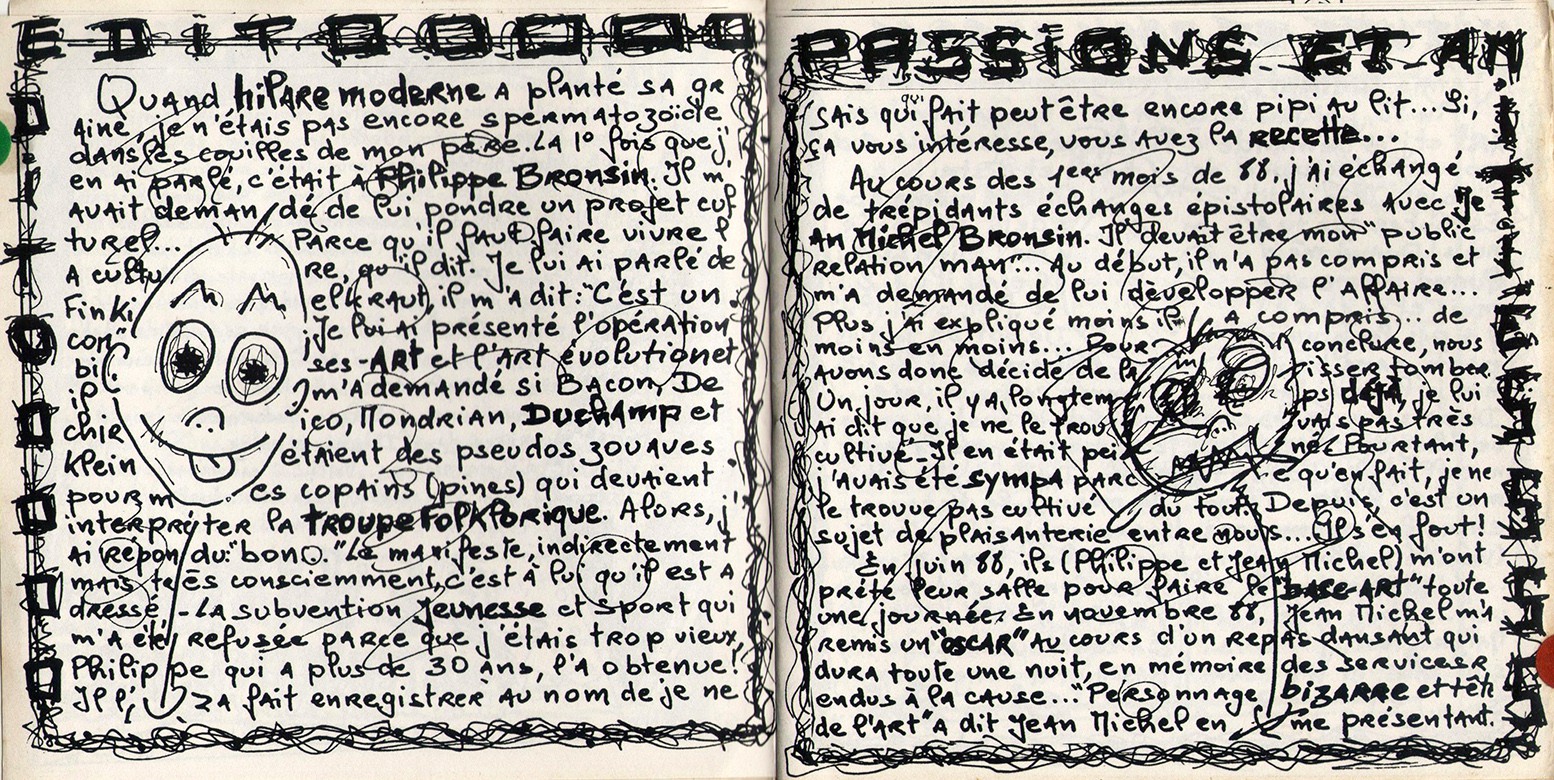 EDITOOOOO
Quand hilare moderne a planté sa gr
aine, je n'étais pas encore spermatozoïde
dans les couilles de mon père. La 1° fois que j'
en ai parlé, c'était à Philippe Bronsin. Il m'
avait deman dé de lui pondre un projet cul
turel... Parce qu'il faut faire vivre l
a cultu re, qu'il dit. Je lui ai parlé de
Finki elkraut, il m'a dit: "C'est un
con" Je lui ai présenté l'opération
bi ses-ART et l'ART évolutionet
il m'a demandé si Bacon, De
chir ico, Mondrian, Duchamp et
Klein étaient des pseudos zouaves
pour m es copains (pines) qui devaient
interpréter la troupe folklorique. Alors, j'
ai répon du "bon". Le manifeste, indirectement
mais très consciemment, c'est à lui qu'il est a
dressé - La subvention jeunesse et sport qui
m'a été refusée parce que j'étais trop vieux,
Philip pe qui a plus de 30 ans, l'a obtenue!
Il l' a fait enregistrer au nom de je ne
PASSIONS ET AM
sais qui qui fait peut être encore pipi au lit... Si,
ça vous intéresse, vous avez la recette...
Au cours des 1ers mois de 88, j'ai échangé
de trépidants échanges épistolaires avec Je
an Michel Bronsin. Il devait être mon "public
relation man"... Au début, il n'a pas compris et
m'a demandé de lui développer l'affaire...
Plus j'ai expliqué moins il a compris... de
moins en moins... Pour conclure, nous
avons donc décidé de la isser tomber.
Un jour, il y a longtem ps déjà, je lui
ai dit que je ne le trou vais pas très
cultivé - Il en était pei né. Pourtant,
j'avais été sympa parc e qu'en fait, je ne
le trouve pas cultivé du tout. Depuis, c'est un
sujet de plaisanterie entre nous... Il s'en fout!
En juin 88, ils (Philippe et Jean Michel) m'ont
prété leur salle pour faire le "base-ART" toute
une journée. En novembre 88, Jean Michel m'a
remis un "oscar" au cours d'un repas dansant qui
dura toute une nuit, en mémoire des services r
endus à la cause... "Personnage bizarre et têtu
de l'art" a dit Jean Michel en me présentant.